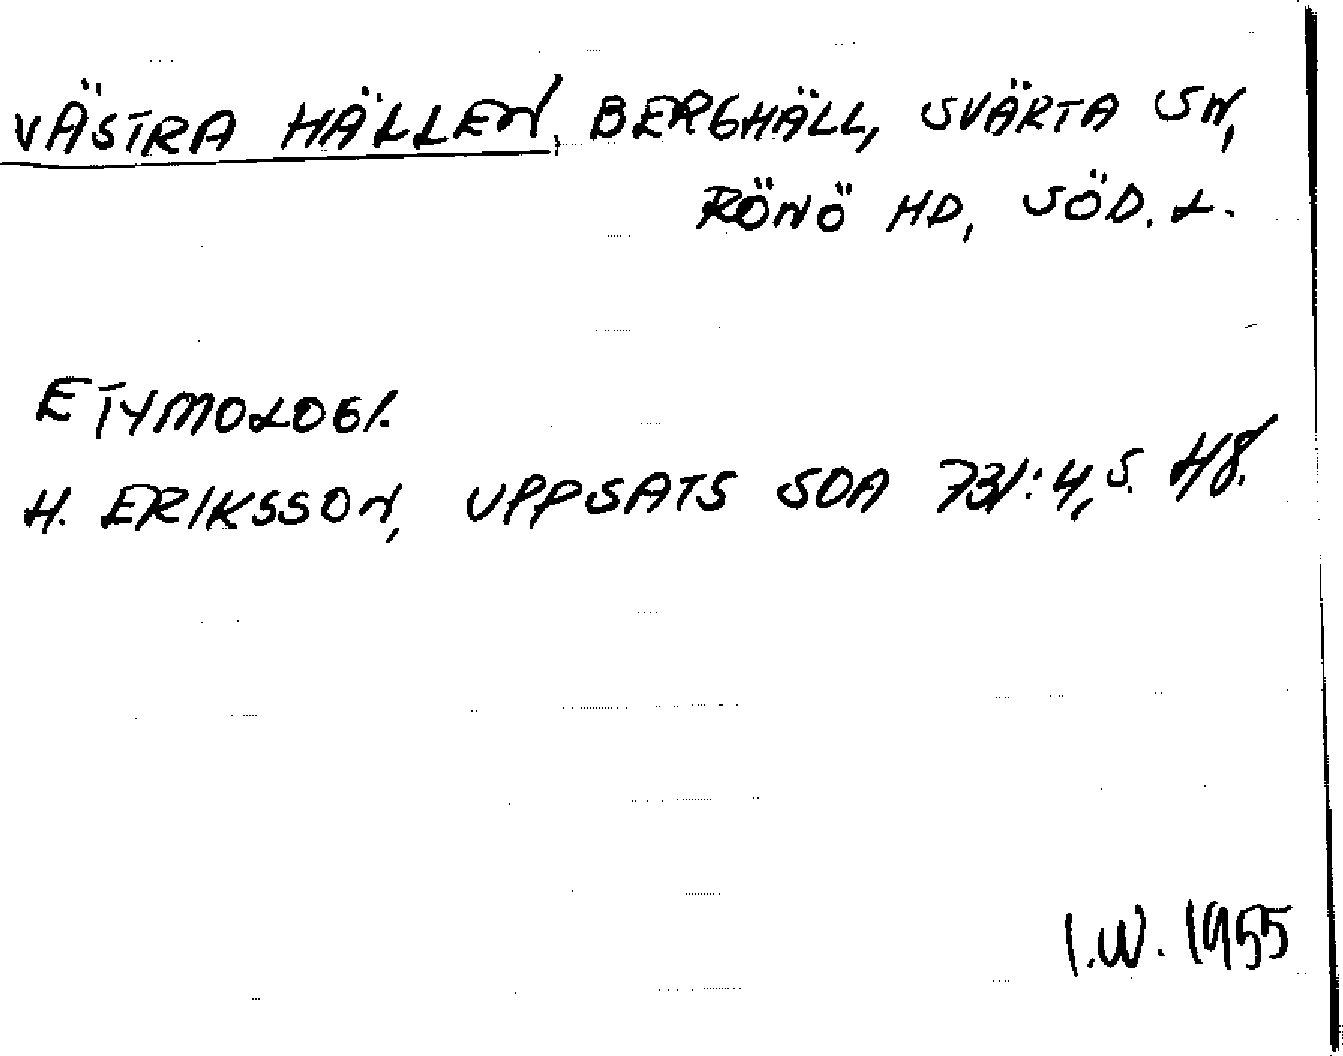 VÄSTRA HÄLLEN, BERGHÄLL, SVÄRTA SN,
RÖNÖ HD, SÖD. L.
ETYMOLOGI.
H. ERIKSSON, UPPSATS SOA 731:4, S. 48.
I.W. 1955